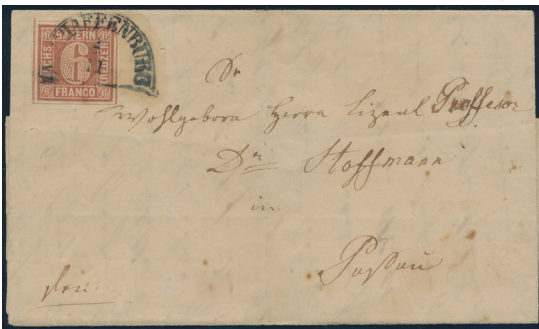 BAYERN
6
SECHS
KREUZER
FRANCO
ASCHAFFENBURG
Sr
Wohlgeborn Herrn Lizeal Professor
Dr. Hoffmann
in
Passau